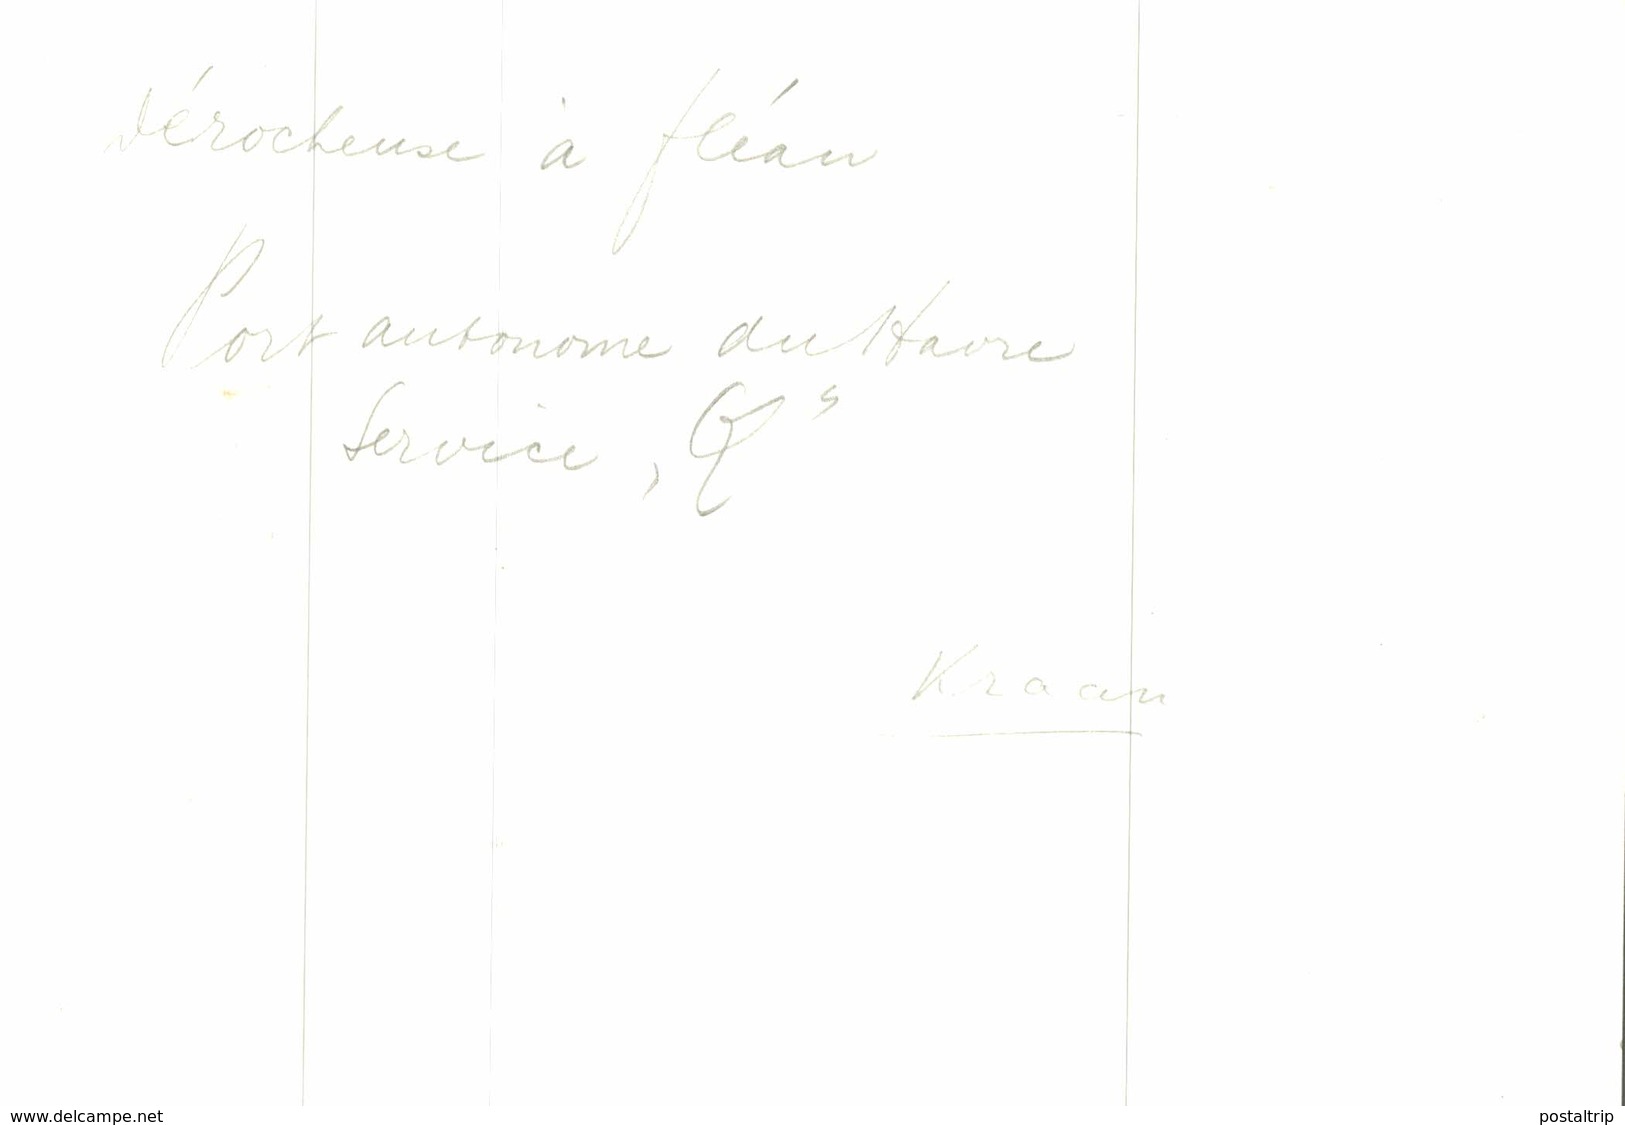 Dérocheuse à fléau
Port autonome du Havre
Service,
Kraan
www.delcampe.net
postaltrip